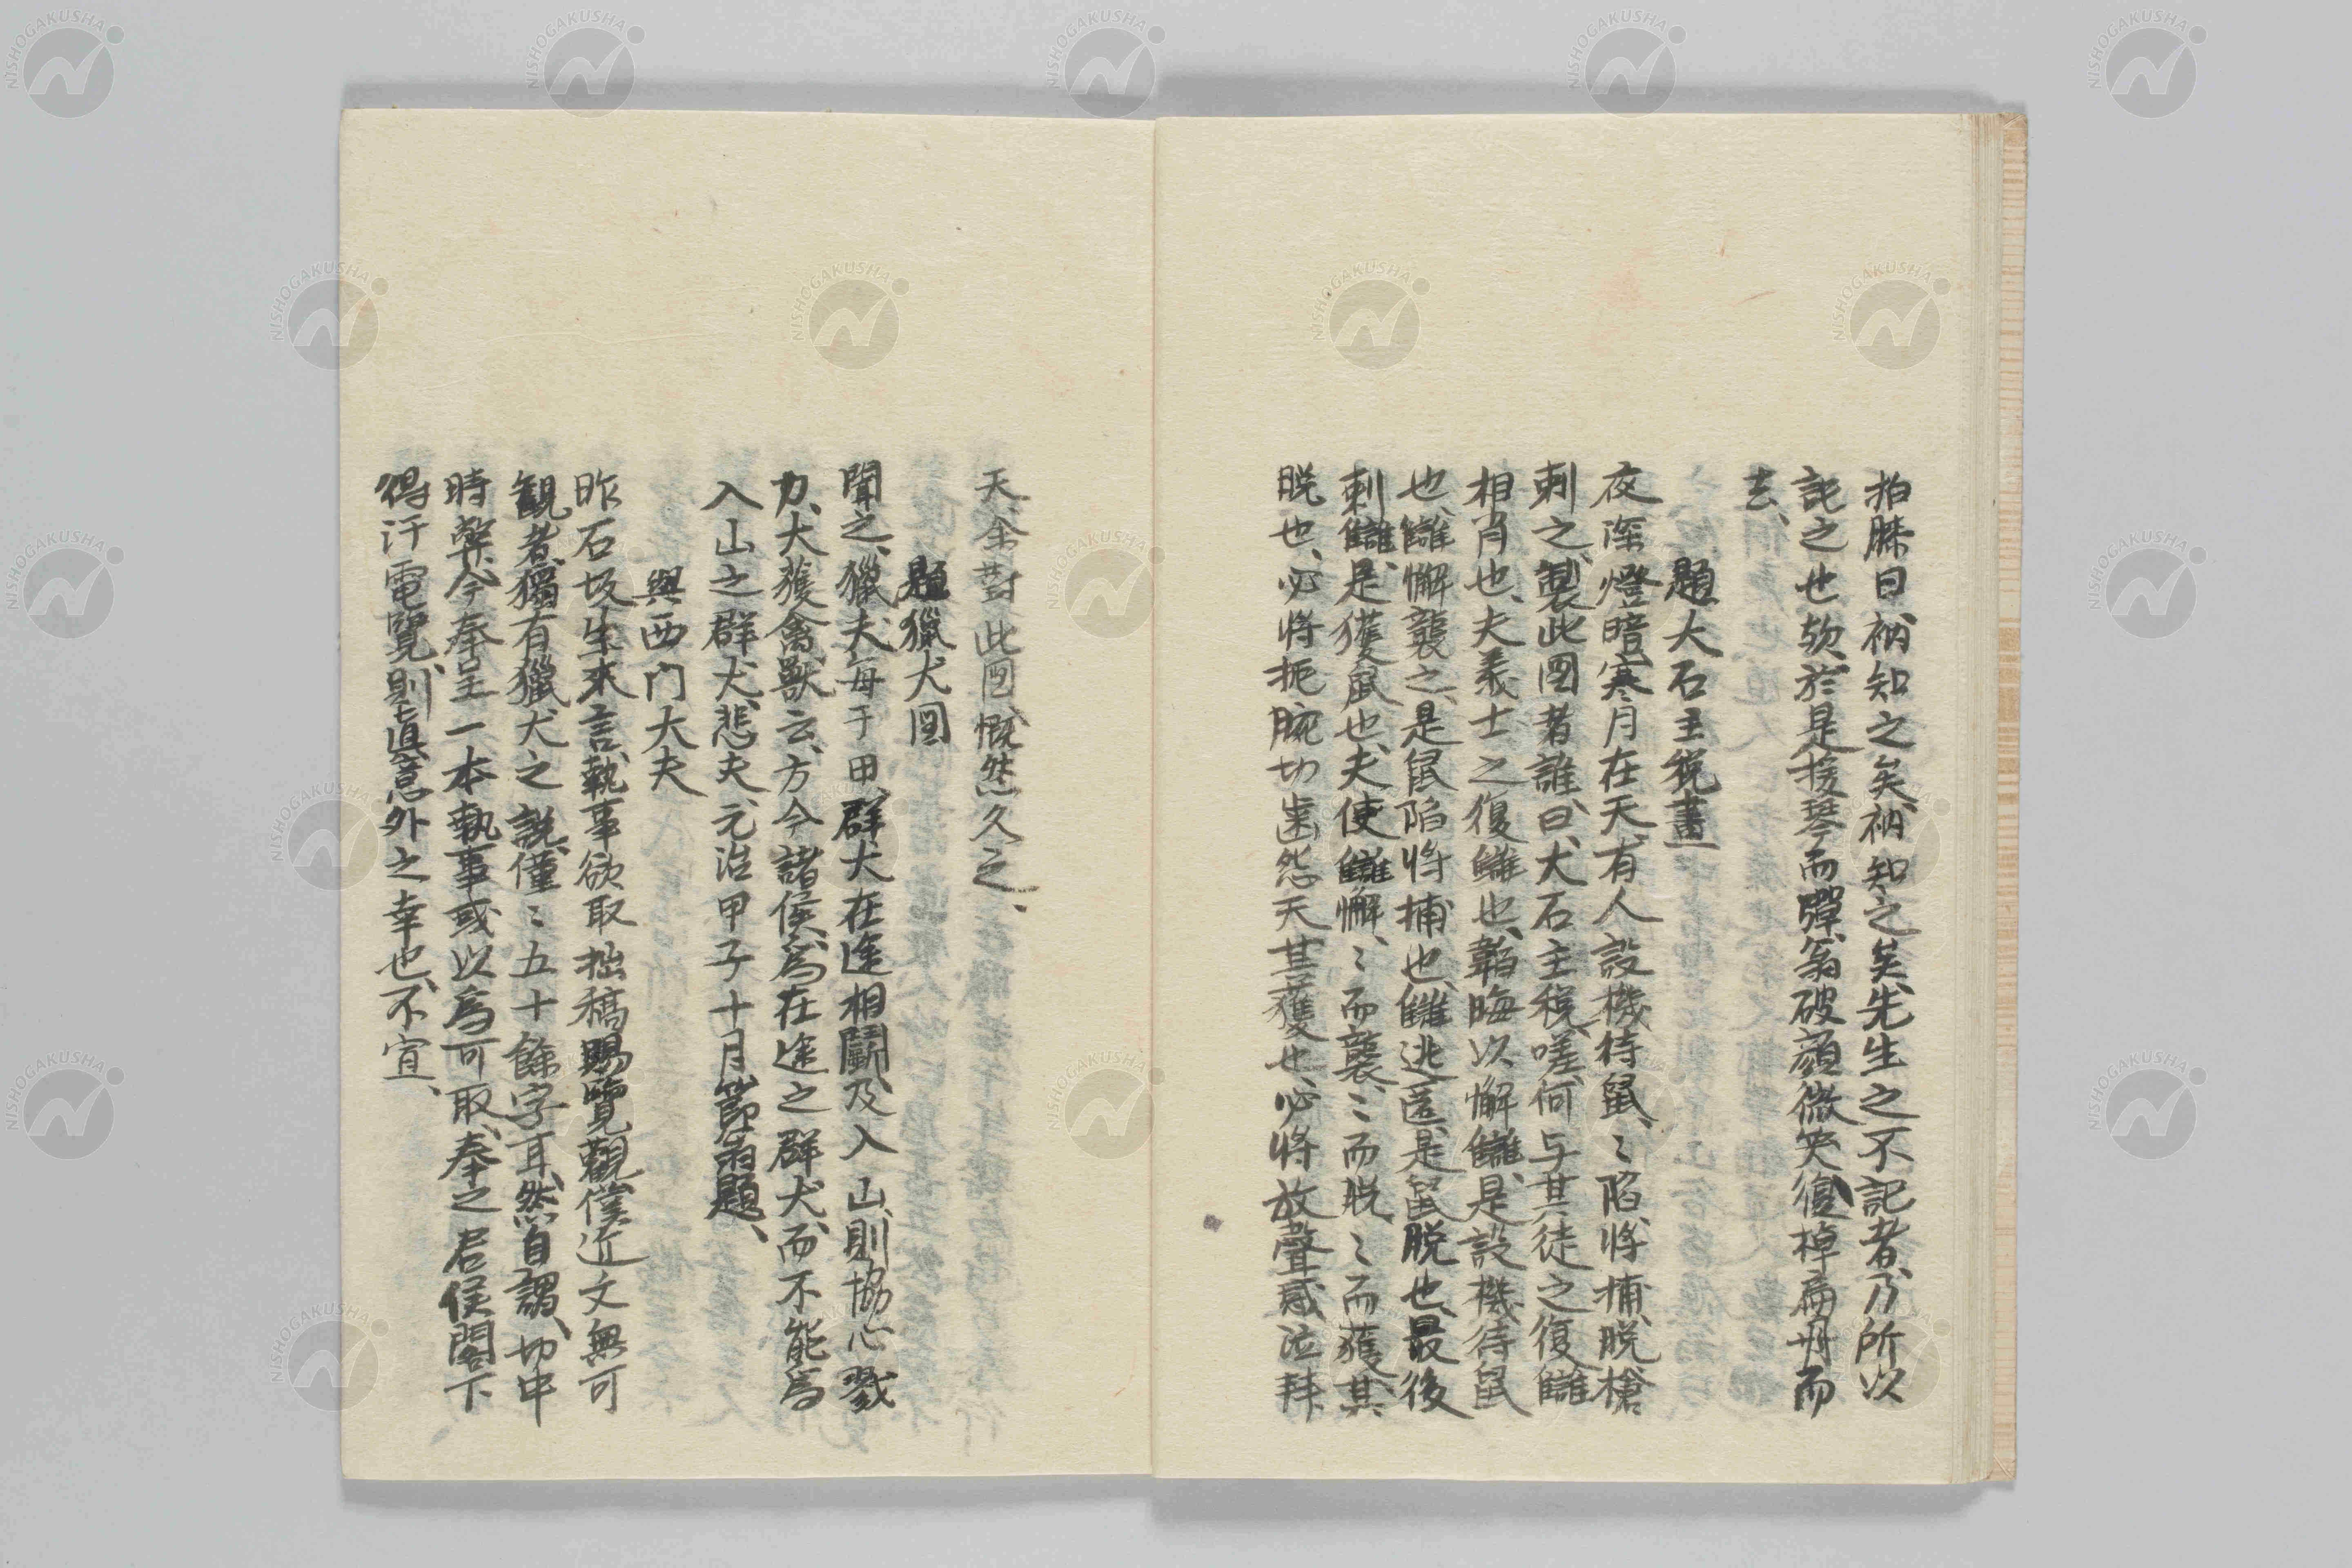 拍膝曰衲知之矣衲知之矣先生之不記者乃所以
詫之也欤於是援琴而彈翁破顔微笑復棹扁舟而
去、
題大石主税畫
夜深燈暗寒月在天、有人設機待鼠、〻陷將捕、脱槍
刺之、製此圖者誰曰、大石主税、嗟何与其徒之復讎
相肖也、夫義士之復讎也、韜晦以懈讎、是設機待鼠
也、讎懈襲之、是鼠陷將捕也、讎逃匿、是鼠脱也、最後
刺讎、是獲鼠也、夫使讎懈、〻而襲、〻而脱、〻而獲、其
脱也、必将扼腕切歯怨天、其獲也、必将放聲感泣拜
天、余對此圖、慨然久之、
題獵犬圖
聞之、獵夫毎于田、群犬在途相鬪、及入山、則協心戮
力、大獲禽獸云、方今諸侯、為在途之群犬、而不能為
入山之群犬、悲夫、元治甲子十月節翁題、
與西門大夫
昨石坂生來言、執事欲取拙稿賜覽觀、僕近文無可
観者、獨有獵犬之說、僅〻五十餘字耳、然自謂、切中
時弊、今奉呈一本、執事或以為可取、奉之君侯閣下
得汙電覽、則真意外之幸也、不宣、
NISHOGAKUSHA